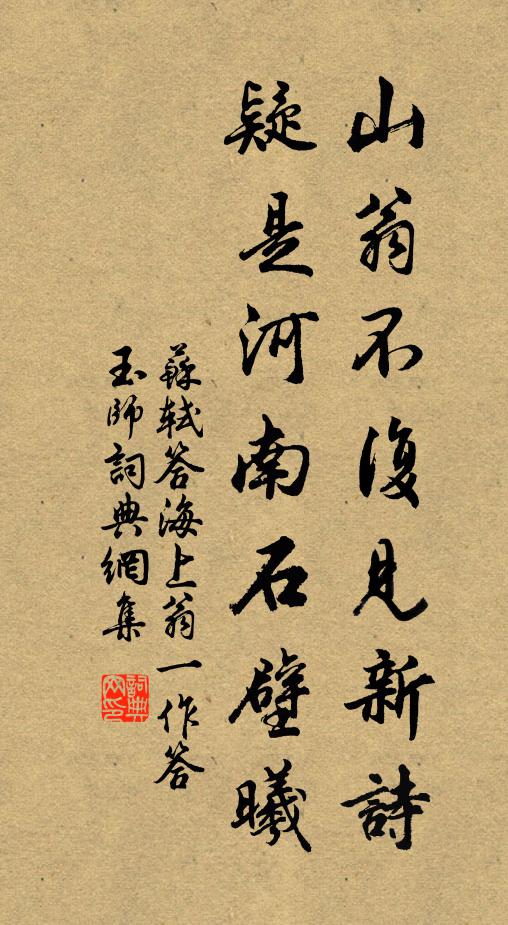 山翁不復見新詩
疑是河南石壁曦
蘇軾答海上翁一作答
玉師詞典網集
詞典網印